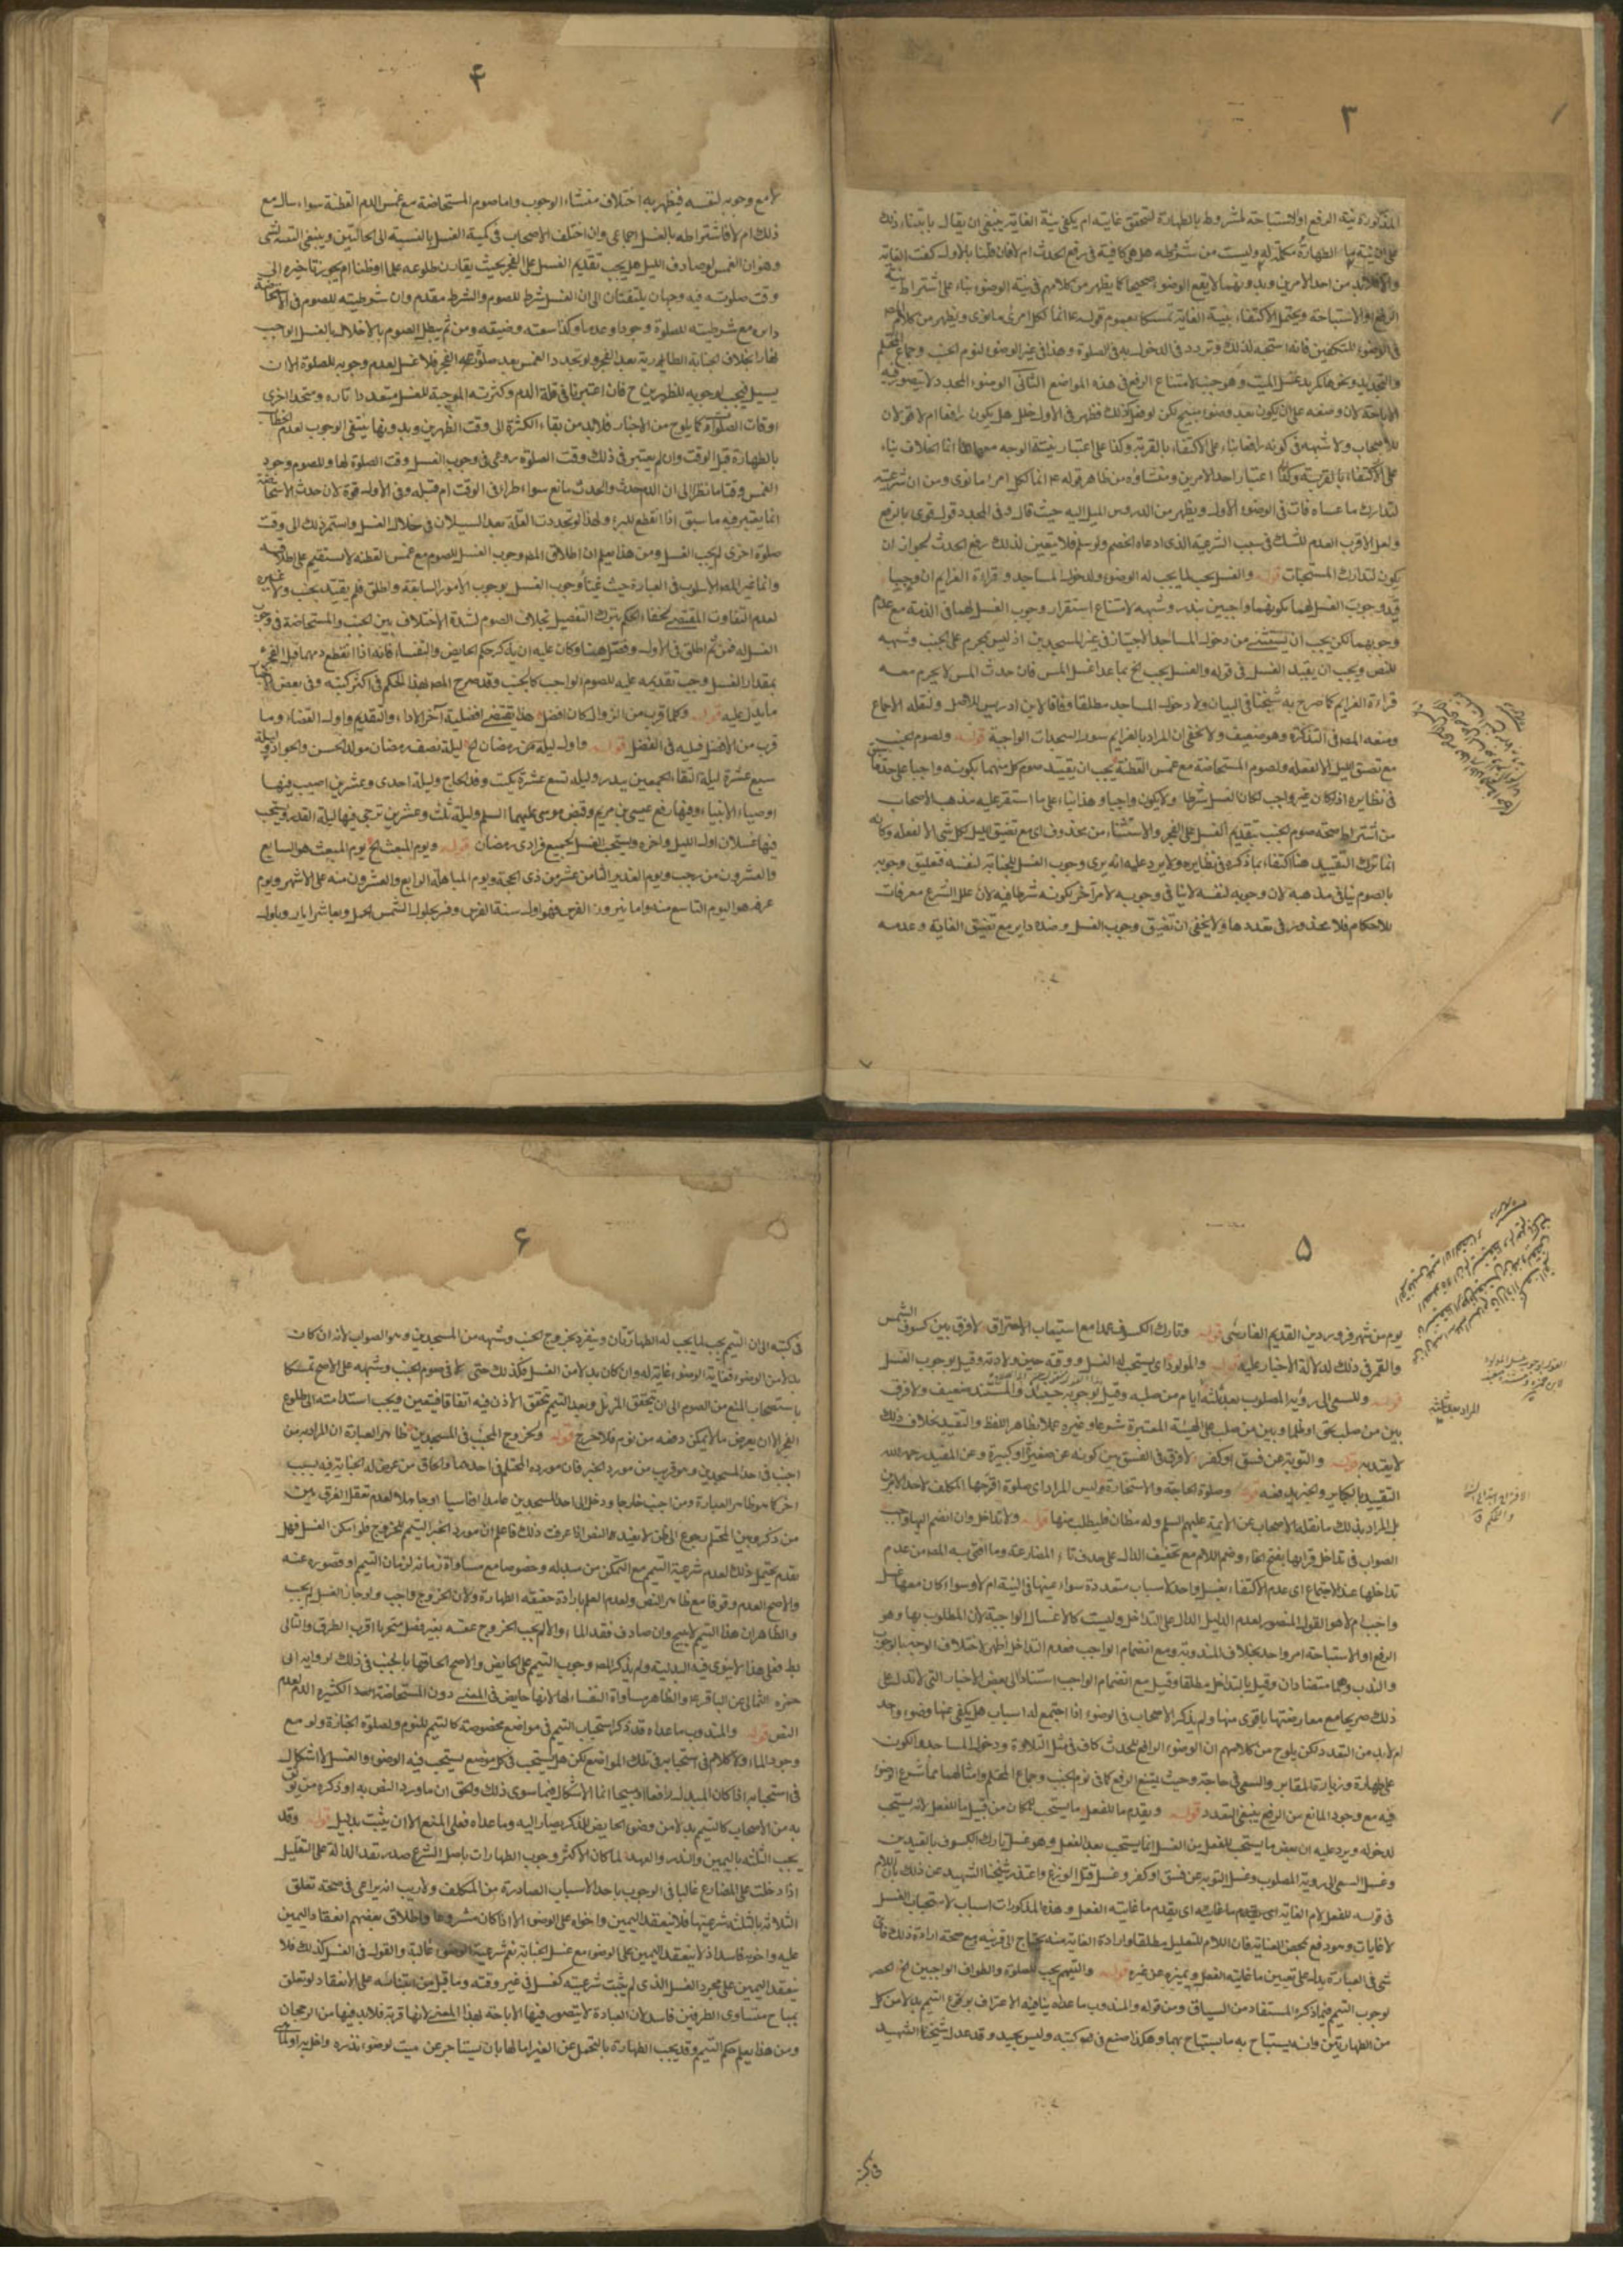 ٣
المذكورة نية الرفع او الاستباحة لمشروط بالطهارة لتحقق غايته ام يكفي نية الغاية ينبغي ان يقال بابتناء ذلك
من احد الامرين وبدونهما لا يقع الوضوء صحيحا كما يظهر من كلامهم في نية الوضوء بناء على اشتراط نية
الرفع او الاستباحة ويحتمل الاكتفاء بنية الغاية تمسكا بعموم قوله ع انما لكل امرئ ما نوى ويظهر من كلام
في الوضوء للتكفين فانه استحبه لذلك وتردد في الدخول به في الصلوة وهذا في غير الوضوء لنوم الجنب وجماع المحتلم
للاصحاب ولا شبهة في كونه رافعا بناء على الاكتفاء بالقربة وكذا على اعتبار
على الاكتفاء بالقربة وكذا اعتبار احد الامرين ومنشاؤه من ظاهر قوله ع انما لكل امرئ ما نوى ومن ان شرعيته
لتدارك ما عساه فات في الوضوء الاول ويظهر من الدروس الميل اليه حيث قال وفي المجدد قول قوي بالرفع
ولعل الاقرب العدم للشك في سبب الشرعية الذي ادعاه الخصم ولو سلم فلا يتعين لذلك رفع الحدث لجواز ان
يكون لتدارك المستحبات قوله والغسل يجب لما يجب له الوضوء ولدخول المساجد وقراءة العزايم ان وجبا
قيد وجوب الغسل لهما بكونهما واجبين بنذر وشبهه لامتناع استقرار وجوب الغسل لهما في الذمة مع عدم
وجوبهما لكن يجب ان يستثنى من دخول المساجد الاجتياز في غير المسجدين اذ ليس يحرم على الجنب وشبهه
للنص ويجب ان يقيد الغسل في قوله والغسل يجب الخ بما عدا غسل المس فان حدث المس لا يحرم معه
قراءة العزايم كما صرح به شيخنا في البيان ولا دخول المساجد مطلقا وفاقا لابن ادريس للاصل ونقله الاجماع
ومنعه المصه في التذكرة وهو ضعيف ولا يخفى ان المراد بالعزايم سور السجدات الواجبة قوله ولصوم الجنب
مع تضيق الليل الا لفعله ولصوم المستحاضة مع غمس القطنة يجب ان يقيد صوم كل منهما بكونه واجبا على حد ما سبق
في نظايره اذ لو كان غير واجب لكان الغسل شرطا ولا يكون واجبا وهذا بناء على ما استقر عليه مذهب الاصحاب
من اشتراط صحة صوم الجنب بتقديم الغسل على الفجر والاستثناء من محذوف اي مع تضيق الليل لكل شيء الا لفعله وكانه
انما ترك التقييد هنا اكتفاء بما ذكره في نظايره ولا يرد عليه انه يرى وجوب الغسل للجنابة لنفسه فتعليق وجوبه
بالصوم ينافي مذهبه لان وجوبه لنفسه لا ينافي وجوبه لامر آخر لكونه شرطا فيه لان علل الشرع معرفات
للاحكام فلا محذور في تعددها ولا يخفى ان تضيق وجوب الغسل وضده داير مع تضيق الغاية وعدمه
٤
لا مع وجوبه لنفسه فيظهر به اختلاف منشاء الوجوب واما صوم المستحاضة مع غمس الدم القطنة سواء سال مع
ذلك ام لا فاشتراطه بالغسل اجماعي وان اختلف الاصحاب في كمية الغسل بالنسبة الى الحالتين وينبغي التنبه لشيء
وهو ان الغمس لو صادف الليل هل يجب تقديم الغسل على الفجر بحيث يقارن طلوعه علما او ظنا ام يجوز تاخيره الى
وقت صلوته فيه وجهان يلتفتان الى ان الغسل شرط للصوم والشرط مقدم وان شرطيته للصوم في الاستحاضة
داير مع شرطيته للصلوة وجودا وعدما وكذا سعته وضيقه ومن ثم يبطل الصوم بالاخلال بالغسل الواجب
نهارا بخلاف الجنابة الطارية بعد الفجر ولو تجدد الغمس بعد صلوة الفجر فلا غسل لعدم وجوبه للصلوة الا ان
يسيل فيجب لوجوبه للظهرين ح فان اعتبرنا في قلة الدم وكثرته الموجبة للغسل متعددا تارة ومتحدا اخرى
اوقات الصلوة كما يلوح من الاخبار فلا بد من بقاء الكثرة الى وقت الظهرين وبدونها ينتفي الوجوب لعدم الخطاب
بالطهارة قبل الوقت وان لم يعتبر في ذلك وقت الصلوة روعي في وجوب الغسل وقت الصلوة لها وللصوم وجود
الغمس وقتا ما نظرا الى ان الدم حدث والحدث مانع سواء طرا في الوقت ام قبله وفي الاول قوة لان حدث الاستحاضة
انما يعتبر فيه ما سبق اذا انقطع للبرء ولهذا لو تجددت القلة بعد السيلان في خلال الغسل واستمر ذلك الى وقت
صلوة اخرى لم يجب الغسل ومن هذا يعلم ان اطلاق المصه وجوب الغسل للصوم مع غمس القطنة لا يستقيم على اطلاقه
وانما غير المصه الاسلوب في العبارة حيث غيا وجوب الغسل بوجوب الامور السابقة واطلق فلم يقيد بجنب ولا غيره
لعدم التفاوت المقتضي لخفاء الحكم بترك التفصيل بخلاف الصوم لشدة الاختلاف بين الجنب والمستحاضة في وجوب
الغسل له فمن ثم اطلق في الاول وفصل هنا وكان عليه ان يذكر حكم الحايض والنفساء فانه اذا انقطع دمهما قبل الفجر
بمقدار الغسل وجب تقديمه عليه للصوم الواجب كالجنب وقد صرح المصه بهذا الحكم في اكثر كتبه وفي بعض الاخبار
ما يدل عليه قوله وكلما قرب من الزوال كان افضل هذا يقتضي افضلية آخر الاداء والتقديم واول القضاء وما
قرب من الافضل فيه في الفضل قوله واول ليلة من رمضان الخ ليلة نصف رمضان مولد الحسن والجواد وليلة
سبع عشرة ليلة التقاء الجمعين ببدر وليلة تسع عشرة يكتب وفد الحاج وليلة احدى وعشرين اصيب فيها
اوصياء الانبياء وفيها رفع عيسى بن مريم وقبض موسى عليهما السلم وليلة ثلث وعشرين ترجى فيها ليلة القدر ويستحب
فيها غسلان اول الليل واخره ويستحب الغسل لجميع فرادى رمضان قوله ويوم المبعث الخ يوم المبعث هو السابع
والعشرون من رجب ويوم الغدير الثامن عشر من ذي الحجة ويوم المباهلة الرابع والعشرون منه على الاشهر ويوم
عرفة هو اليوم التاسع منه واما نيروز الفرس فهو اول سنة الفرس وفسر بحلول الشمس الحمل وبعاشر ايار وباول
٥
يوم من شهر فروردين القديم الفارسي قوله وتارك الكسوف عمدا مع استيعاب الاحتراق لا فرق بين كسوف الشمس
والقمر في ذلك لدلالة الاخبار عليه قوله والمولود اي يستحب له الغسل ووقته حين ولادته وقيل بوجوب الغسل
قوله وللسعي الى رؤية المصلوب بعد ثلثة ايام من صلبه وقيل بوجوبه حينئذ والمستند ضعيف ولا فرق
بين من صلب بحق او ظلما وبين من صلب على الهيئة المعتبرة شرعا وغيره عملا بظاهر اللفظ والتقييد بخلاف ذلك
لا يعتد به قوله والتوبة عن فسق او كفر لا فرق في الفسق بين كونه عن صغيرة او كبيرة وعن المفيد رحمه الله
التقييد بالكباير والخبر يدفعه قوله وصلوة الحاجة والاستخارة وليس المراد اي صلوة اقترحها المكلف لاحد الامرين
بل المراد بذلك ما نقله الاصحاب عن الائمة عليهم السلم وله مظان فليطلب منها قوله ولا تداخل وان انضم اليها واجب
الصواب في تداخل قراءتها بفتح الخاء وضم اللام مع تخفيف الدال على حذف تاء المضارعة وما افتى به المصه من عدم
تداخلها عند الاجتماع اي عدم الاكتفاء بغسل واحد لاسباب متعددة سواء عينها في النية ام لا وسواء كان معها غسل
واجب ام لا هو القول المنصور لعدم الدليل الدال على التداخل وليست كالاغسال الواجبة لان المطلوب بها وهو
الرفع او الاستباحة امر واحد بخلاف المندوبة ومع انضمام الواجب فعدم التداخل اظهر لاختلاف الوجه بالوجوب
والندب وهما متضادان وقيل بالتداخل مطلقا وقيل مع انضمام الواجب استنادا الى بعض الاخبار التي لا تدل على
ذلك صريحا مع معارضتها باقوى منها ولم يذكر الاصحاب في الوضوء اذا اجتمع له اسباب هل يكفي عنها وضوء واحد
ام لا بد من التعدد لكن يلوح من كلامهم ان الوضوء الرافع للحدث كاف في مثل التلاوة ودخول المساجد والكون
على طهارة وزيارة المقابر والسعي في حاجة وحيث يمتنع الرفع كما في نوم الجنب وجماع المحتلم وامثالهما مما شرع الوضوء
فيه مع وجود المانع من الرفع ينبغي التعدد قوله ويقدم ما للفعل ما يستحب للمكان من قبيل ما للفعل لانه يستحب
لدخوله ويرد عليه ان بعض ما يستحب للفعل من الغسل انما يستحب بعد الفعل وهو غسل تارك الكسوف بالقيدين
وغسل السعي الى رؤية المصلوب وغسل التوبة عن فسق او كفر وغسل قتل الوزغ واعتذر شيخنا الشهيد عن ذلك بان اللام
في قوله للفعل لام الغاية اي يقدم ما غايته الفعل وهذه المذكورات اسباب لاستحباب الغسل
لا غايات وهو دفع محض العناية فان اللام للتعليل مطلقا وارادة الغاية منه يحتاج الى قرينة ومع صحة ارادة ذلك فاي
شيء في العبارة يدل على تعيين ما غايته الفعل وتميزه عن غيره قوله والتيمم يجب للصلوة والطواف الواجبين الخ الحصر
لوجوب التيمم فيما ذكره المستفاد من السياق ومن قوله والمندوب ما عداه ينافيه الاعتراف بوقوع التيمم بدلا من كل
من الطهارتين وانه يستباح به ما يستباح بهما وهكذا صنع في كتبه وليس بجيد وقد عدل شيخنا الشهيد
في كتبه
٦
في كتبه الى ان التيمم يجب لما يجب له الطهارتان وينفرد بخروج الجنب وشبهه من المسجدين وهو الصواب لانه ان كان
بدلا من الوضوء فغاية الوضوء غاية له وان كان بدلا من الغسل فكذلك حتى في صوم الجنب وشبهه على الاصح تمسكا
باستصحاب المنع من الصوم الى ان يتحقق المزيل وبعد التيمم يتحقق الاذن فيه اتفاقا فيتعين ويجب استدامته الى طلوع
الفجر الا ان يعرض ما لا يمكن دفعه من نوم فلا حرج قوله ولخروج المجنب في المسجدين ظاهر العبارة ان المراد به من
اجنب في احد المسجدين وهو قريب من مورد الخبر فان مورده المحتلم في احدهما والحاق من عرض له الجنابة فيه بسبب
اخر كما هو ظاهر العبارة ومن اجنب خارجا ودخل الى احد المسجدين عامدا او ناسيا او جاهلا لعدم تعقل الفرق بين
من ذكر وبين المحتلم رجوع الى ظن لا يفيده النص اذا عرفت ذلك فاعلم ان مورد الخبر التيمم للخروج فلو امكن الغسل فهل
يقدم يحتمل ذلك لعدم شرعية التيمم مع التمكن من مبدله وخصوصا مع مساواة زمانه لزمان التيمم او قصوره عنه
والاصح العدم وقوفا مع ظاهر النص ولعدم العلم بارادة حقيقة الطهارة ولان الخروج واجب ولو جاز الغسل لم يجب
والظاهر ان هذا التيمم لا يبيح وان صادف فقد الماء والا لم يجب الخروج عقبه بغير فصل متحريا اقرب الطرق والتالي
بط فعلى هذا لا ينوي فيه البدلية ولم يذكر المصه وجوب التيمم على الحايض والاصح الحاقها بالجنب في ذلك لرواية ابي
حمزة الثمالي عن الباقر ع والظاهر مساواة النفساء لها لانها حايض في المعنى دون المستحاضة الكثيرة الدم لعدم
النص قوله والمندوب ما عداه قد ذكر استحباب التيمم في مواضع مخصوصة كالتيمم للنوم ولصلوة الجنازة ولو مع
وجود الماء ولا كلام في استحبابه في تلك المواضع لكن هل يستحب في كل موضع يستحب فيه الوضوء والغسل لا اشكال
في استحبابه اذا كان المبدل رافعا او مبيحا انما الاشكال فيما سوى ذلك والحق ان ما ورد النص به او ذكره من يوثق
به من الاصحاب كالتيمم بدلا من وضوء الحايض للذكر يصار اليه وما عداه فعلى المنع الا ان يثبت بدليل قوله وقد
يجب الثلثة باليمين والنذر والعهد لما كان الاكثر وجوب الطهارات باصل الشرع صدر بقد الدالة على التقليل
اذا دخلت على المضارع غالبا في الوجوب باحد الاسباب الصادرة من المكلف ولا ريب انه يراعى في صحة تعلق
الثلاثة بالثلثة شرعيتها فلا ينعقد اليمين واخواه على الوضوء الا اذا كان مشروعا واطلاق بعضهم انعقاد اليمين
عليه واخويه فاسد اذ لا ينعقد اليمين على الوضوء مع غسل الجنابة نعم شرعية الوضوء غالبة والقول في الغسل كذلك فلا
ينعقد اليمين على مجرد الغسل الذي لم يثبت شرعيته كغسل في غير وقته وما قيل من ابتنائه على الانعقاد لو تعلق
بمباح متساوي الطرفين فاسد لان العبادة لا يتصور فيها الاباحة بهذا المعنى لانها قربة فلا بد فيها من الرجحان
ومن هذا يعلم حكم التيمم وقد يجب الطهارة بالتحمل عن الغير اما لها بان يستاجر عن ميت لوضوء نذره واخل به او لما هي